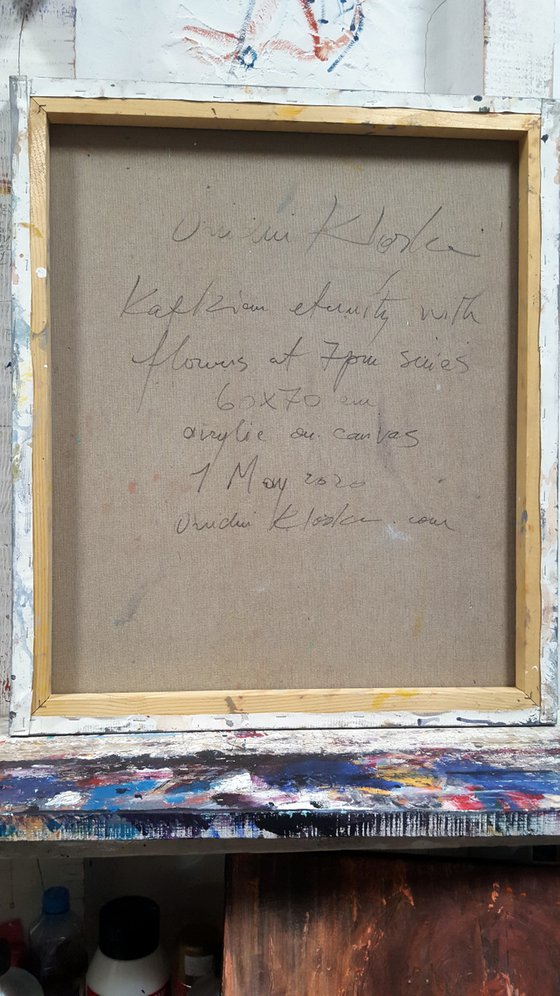 Ovidiu Kloska
Kafkian eternity with
flowers at 7pm series
60x70 cm
acrylic on canvas
1 May 2020
Ovidiu Kloska.com